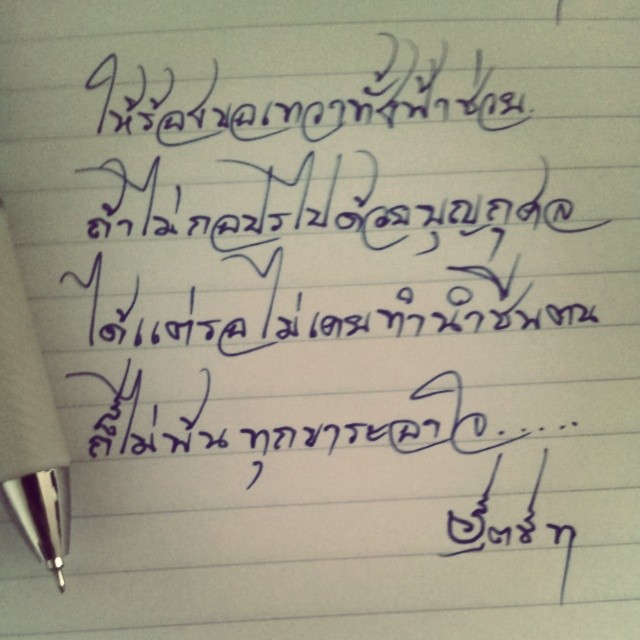 ให้ร้องขอเทวาทั้งฟ้าช่วย.
ถ้าไม่กอปรไปด้วยบุญกุศล
ได้แต่รอไม่เคยทำนำชีพตน
ก็ไม่พ้นทุกขาระอาใจ......